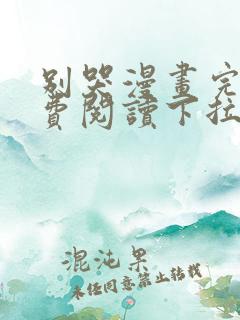 别哭漫畫完
費閱讀下拉
混沌果
未经同意禁止转载